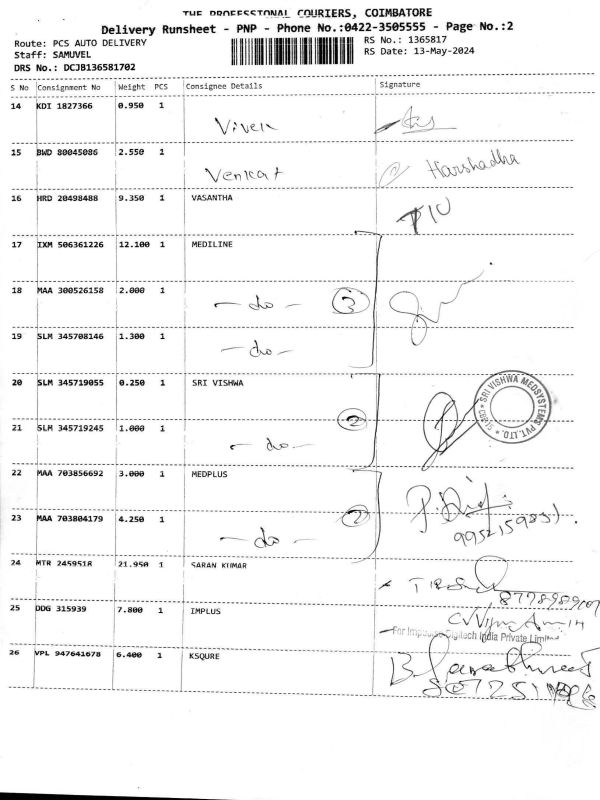 THE PROFESSIONAL COURIERS, COIMBATORE
Delivery Runsheet - PNP - Phone No.:0422-3505555 - Page No.:2
Route: PCS AUTO DELIVERY
Staff: SAMUVEL
DRS No.: DCJB136581702
RS No.: 1365817
RS Date: 13-May-2024
S No Consignment No Weight PCS Consignee Details Signature
14 KDI 1827366 0.950 1
Vivek
15 BWD 80045086 2.550 1
Venkat Harshadha
16 HRD 20498488 9.350 1 VASANTHA
17 IXM 506361226 12.100 1 MEDILINE
18 MAA 300526158 2.000 1
- do - 3
19 SLM 345708146 1.300 1
- do -
20 SLM 345719055 0.250 1 SRI VISHWA
SRI VISHWA MEDSYSTEMS PVT.LTD.
21 SLM 345719245 1.000 1 2
- do -
22 MAA 703856692 3.000 1 MEDPLUS
23 MAA 703804179 4.250 1 2
- do -
24 MTR 2459518 21.950 1 SARAN KUMAR
25 DDG 315939 7.800 1 IMPLUS
Digitech India Private Limited
26 VPL 947641678 6.400 1 KSQURE